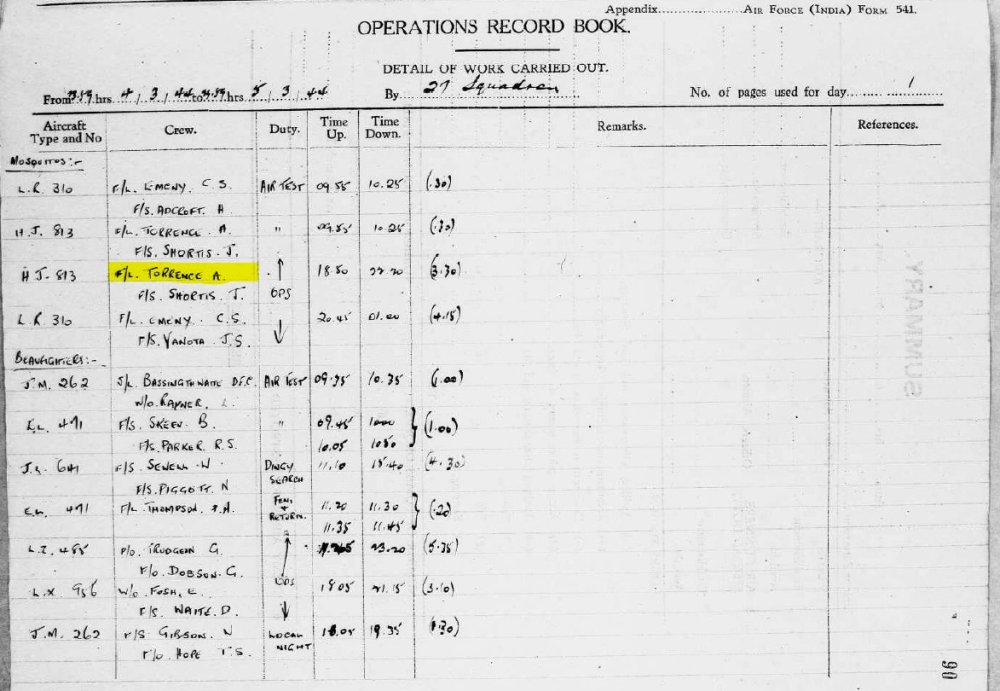 Appendix.................... AIR FORCE (INDIA) FORM 541.
OPERATIONS RECORD BOOK.
DETAIL OF WORK CARRIED OUT.
From 23.59 hrs 4 / 3 / 44 to 23.59 hrs 5 / 3 / 44 By 27 Squadron No. of pages used for day 1
Aircraft Type and No Crew. Duty. Time Up. Time Down. Remarks. References.
MOSQUITOS:-
L.R. 310 F/L. EMENY. C.S. AIR TEST 09.55 10.25 (.30)
F/S. ADCROFT. H
H.J. 813 F/L. TORRENCE. A. " 09.55 10.25 (.30)
F/S. SHORTIS. J.
H J. 813 F/L. TORRENCE A. 18.50 22.20 (3.30)
F/S. SHORTIS. J. OPS
L.R. 310 F/L. EMENY. C.S. 20.45 01.00 (4.15)
F/S. YANOTA J.S.
BEAUFIGHTERS:-
J.M. 262 S/L. BASSINGTHWAITE D.F.C. AIR TEST 09.35 10.35 (1.00)
W/O. RAYNER.
E.L. 471 F/S. SKEEN B. " 09.45 1000 (1.00)
F/S. PARKER R.S. 10.05 1050
641 F/S. SEWELL W DINGY SEARCH 11.10 15.40 (4.30)
F/S. PIGGOTT. N
E.L. 471 F/L. THOMPSON. FENI & RETURN. 11.20 11.30 (.20)
11.35 11.45
L.Z. 485 P/O. TRUDGEON G. 23.20 (5.35)
F/O. DOBSON. G. OPS
L.X 956 W/O. FOSH. E. 18.05 21.15 (3.10)
F/S. WAITE. D.
J.M. 262 F/S GIBSON. N LOCAL NIGHT 18.05 19.35 (1.30)
F/O. HOPE T.S.
SUMMARY
90